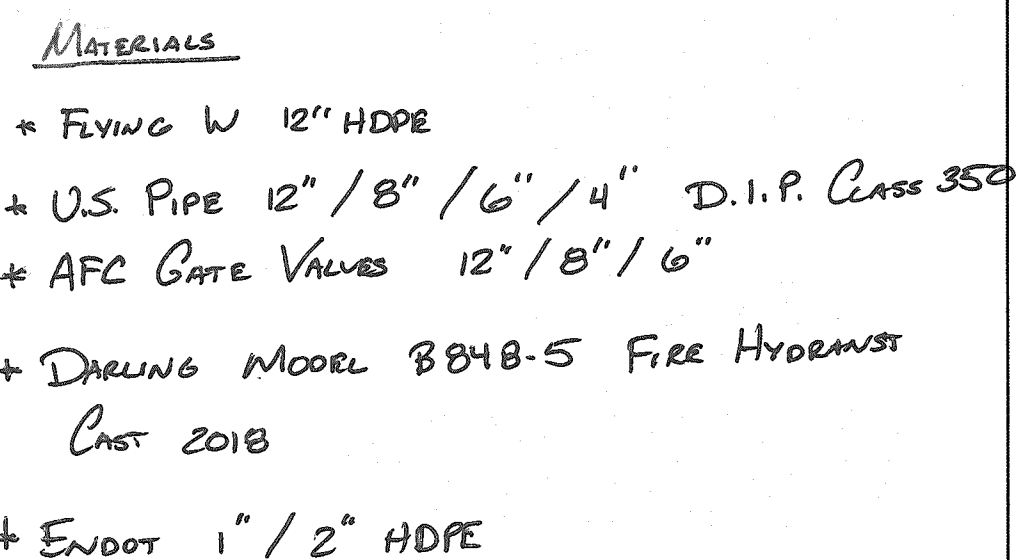 MATERIALS
* FLYING W 12" HDPE
* U.S. PIPE 12" / 8" / 6" / 4" D.I.P. CLASS 350
* AFC GATE VALVES 12" / 8" / 6"
* DARLING MODEL B848-5 FIRE HYDRANST
CAST 2018
* ENDOT 1" / 2" HDPE